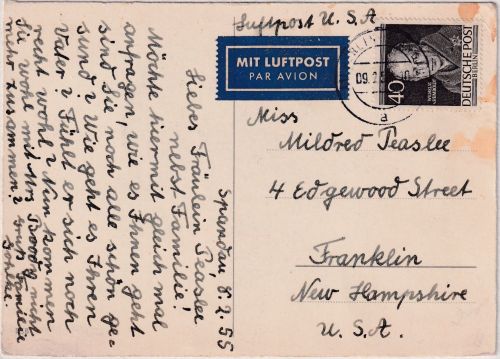 Luftpost U.S.A
MIT LUFTPOST
PAR AVION
DEUTSCHE POST
BERLIN
40
09.2.5
a
Miss
Mildred Peaslee
4 Edgewood Street
Franklin
New Hampshire
U.S.A.
Spandau 8.2.55
Liebes Fräulein Peaslee
nebst Familie!
Möchte hiermit gleich mal
anfragen, wie es Ihnen geht
sind Sie noch alle schön ge-
sund? Wie geht es Ihren
Vater? Fühlt er sich noch
recht wohl? Nun kommen
Sie wohl mit Mrs Boody nicht
mehr zusammen? Gruß Familie